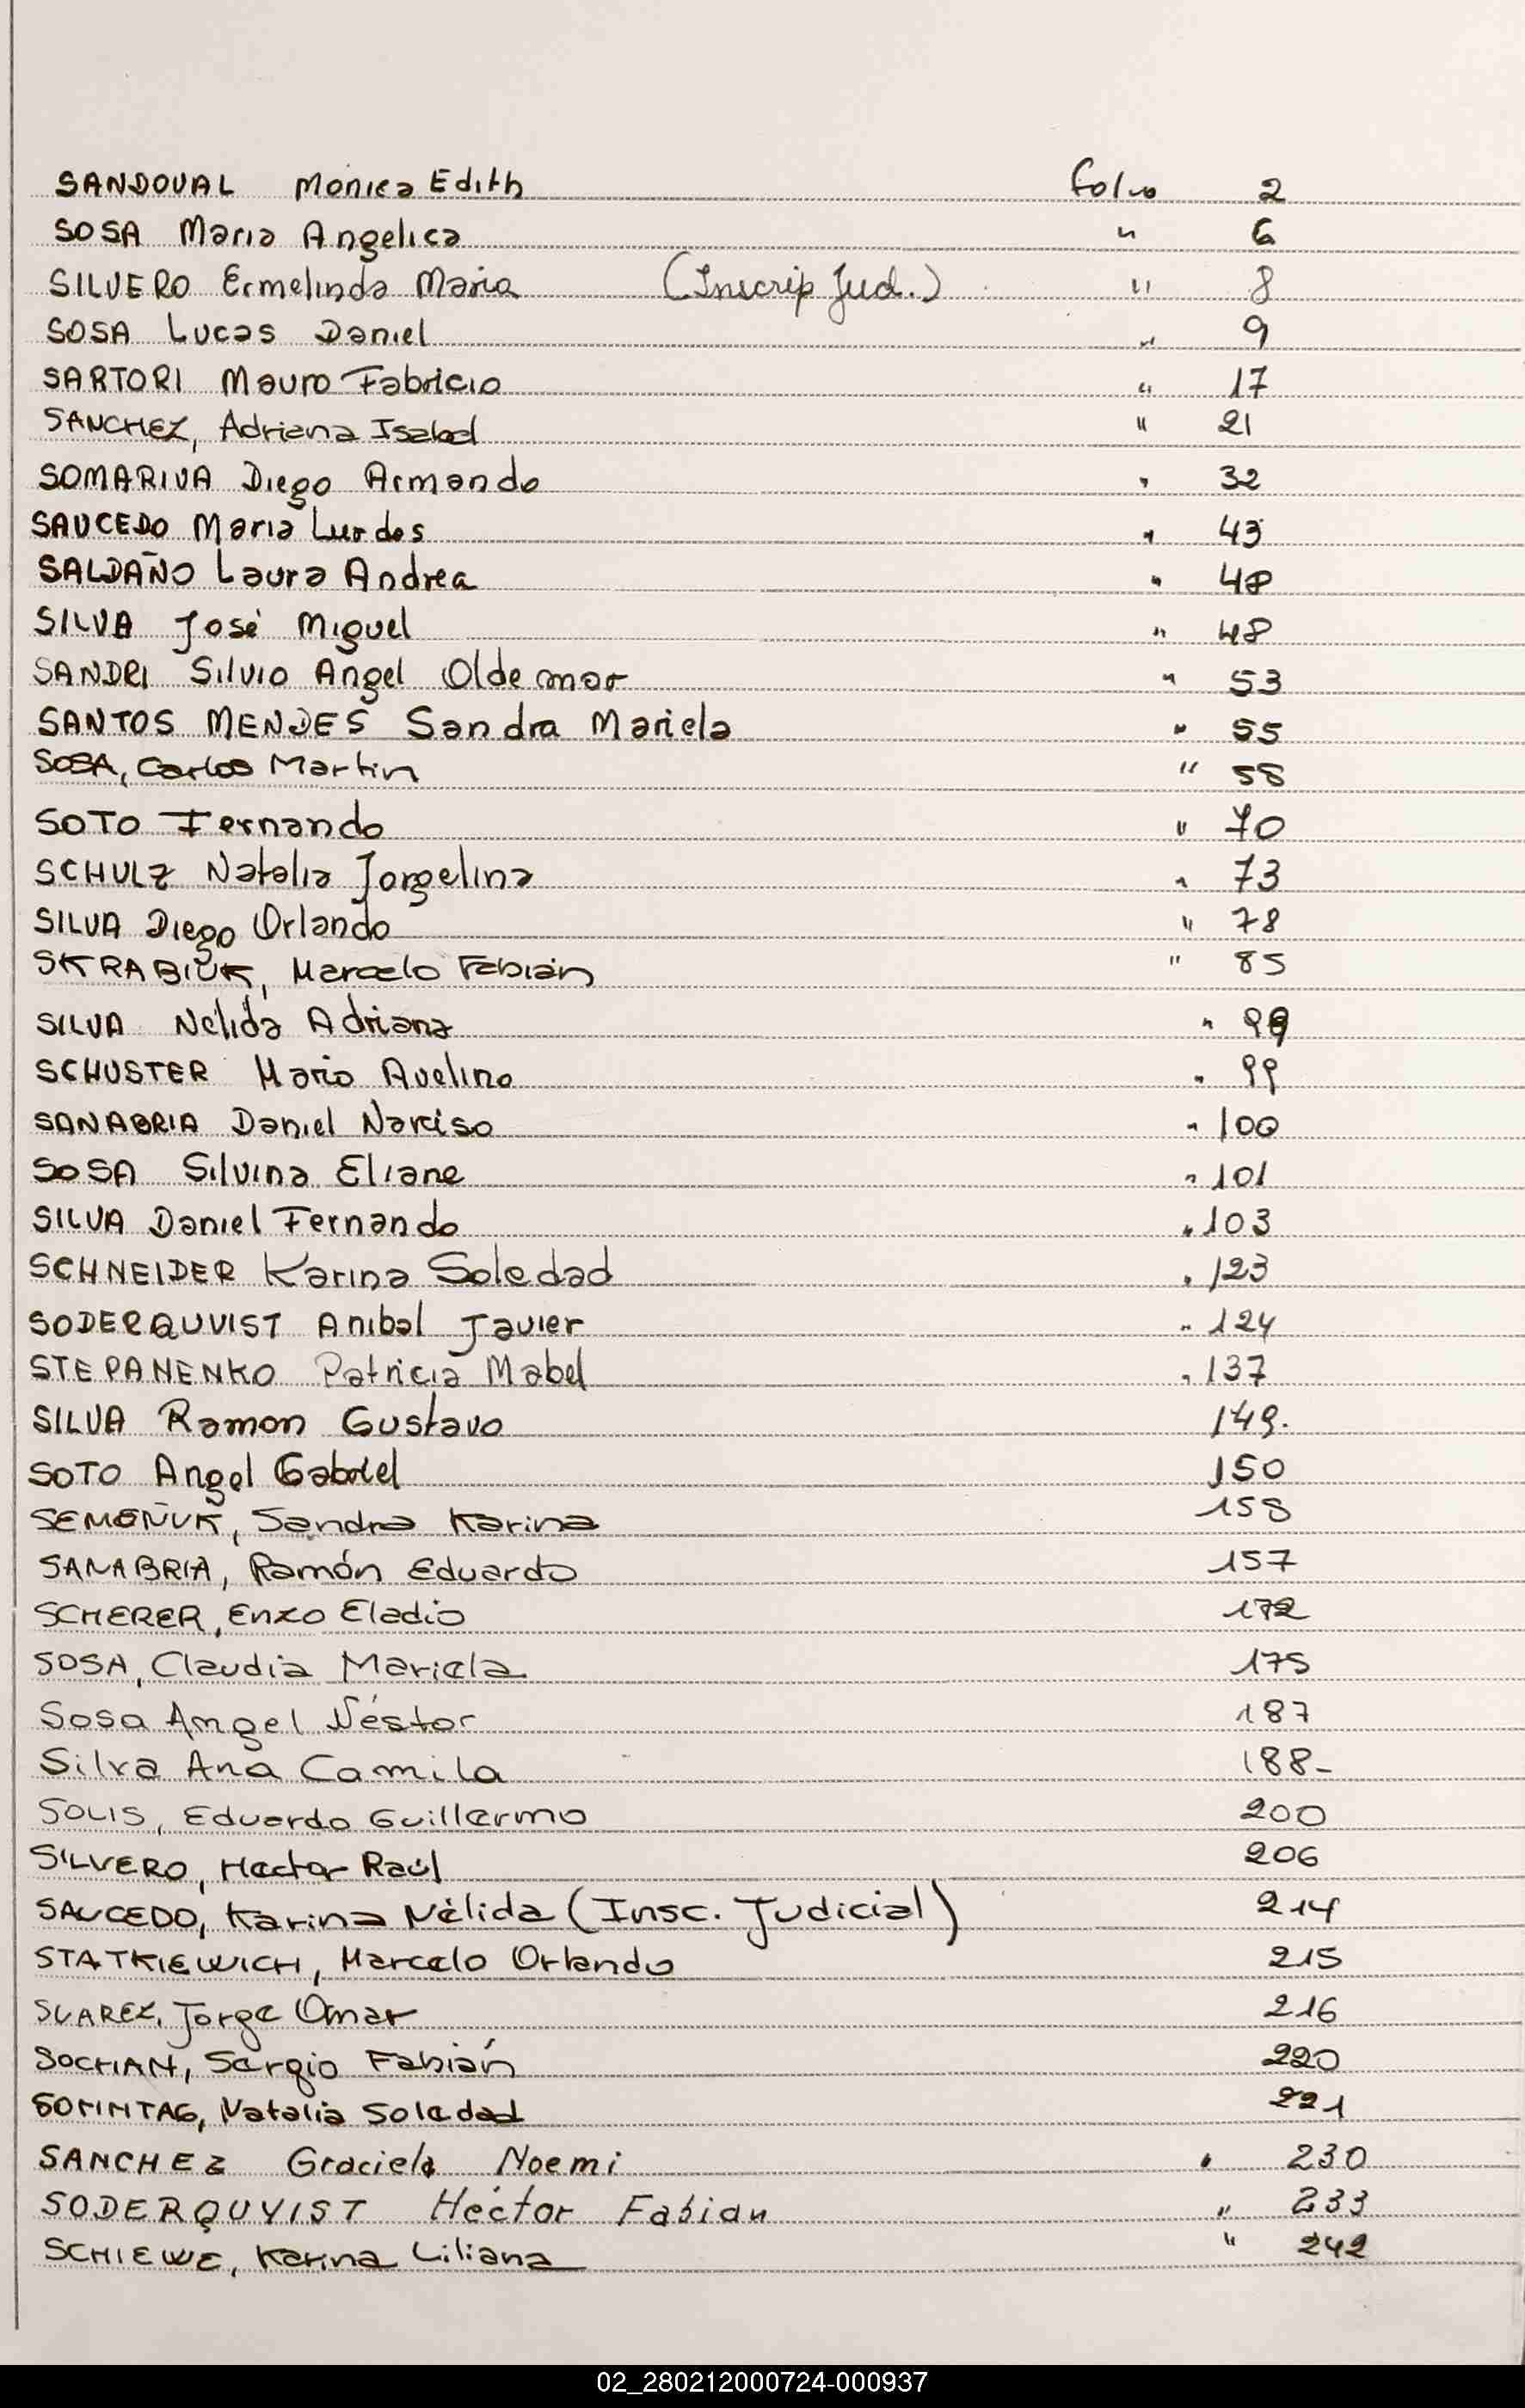 SANDOVAL Monica Edith folio 2
SOSA Maria Angelica " 6
SILVERO Ermelinda Maria (Inscrip Jud.) " 8
SOSA Lucas Daniel " 9
SARTORI Mauro Fabricio " 17
SANCHEZ, Adriana Isabel " 21
SOMARIVA Diego Armando " 32
SAUCEDO Maria Lurdes " 43
SALDAÑO Laura Andrea " 48
SILVA José Miguel " 48
SANDRI Silvio Angel Oldemar " 53
SANTOS MENDES Sandra Mariela " 55
SOSA, Carlos Martin " 58
SOTO Fernando " 70
SCHULZ Natalia Jorgelina " 73
SILVA Diego Orlando " 78
SKRABIUK, Marcelo Fabián " 85
SILVA Nélida Adriana "
SCHUSTER Mario Avelino " 99
SANABRIA Daniel Narciso " 100
SOSA Silvina Eliane " 101
SILVA Daniel Fernando " 103
SCHNEIDER Karina Soledad " 123
SODERQUVIST Anibal Javier " 124
STEPANENKO Patricia Mabel " 137
SILVA Ramon Gustavo 149.
SOTO Angel Gabriel 150
SEMEÑUK, Sandra Karina 158
SANABRIA, Ramón Eduardo 157
SCHERER, Enzo Eladio 172
SOSA, Claudia Mariela 175
Sosa Angel Néstor 187
Silva Ana Camila 188-
SOLIS, Eduardo Guillermo 200
SILVERO, Hector Raúl 206
SAUCEDO, Karina Nélida (Insc. Judicial) 214
STATKIEWICH, Marcelo Orlando 215
SUAREZ, Jorge Omar 216
SOCHAN, Sergio Fabián 220
SOMMTAG, Natalia Soledad 221
SANCHEZ Graciela Noemi " 230
SODERQUVIST Héctor Fabian " 233
SCHIEWE, Karina Liliana " 242
02_280212000724-000937